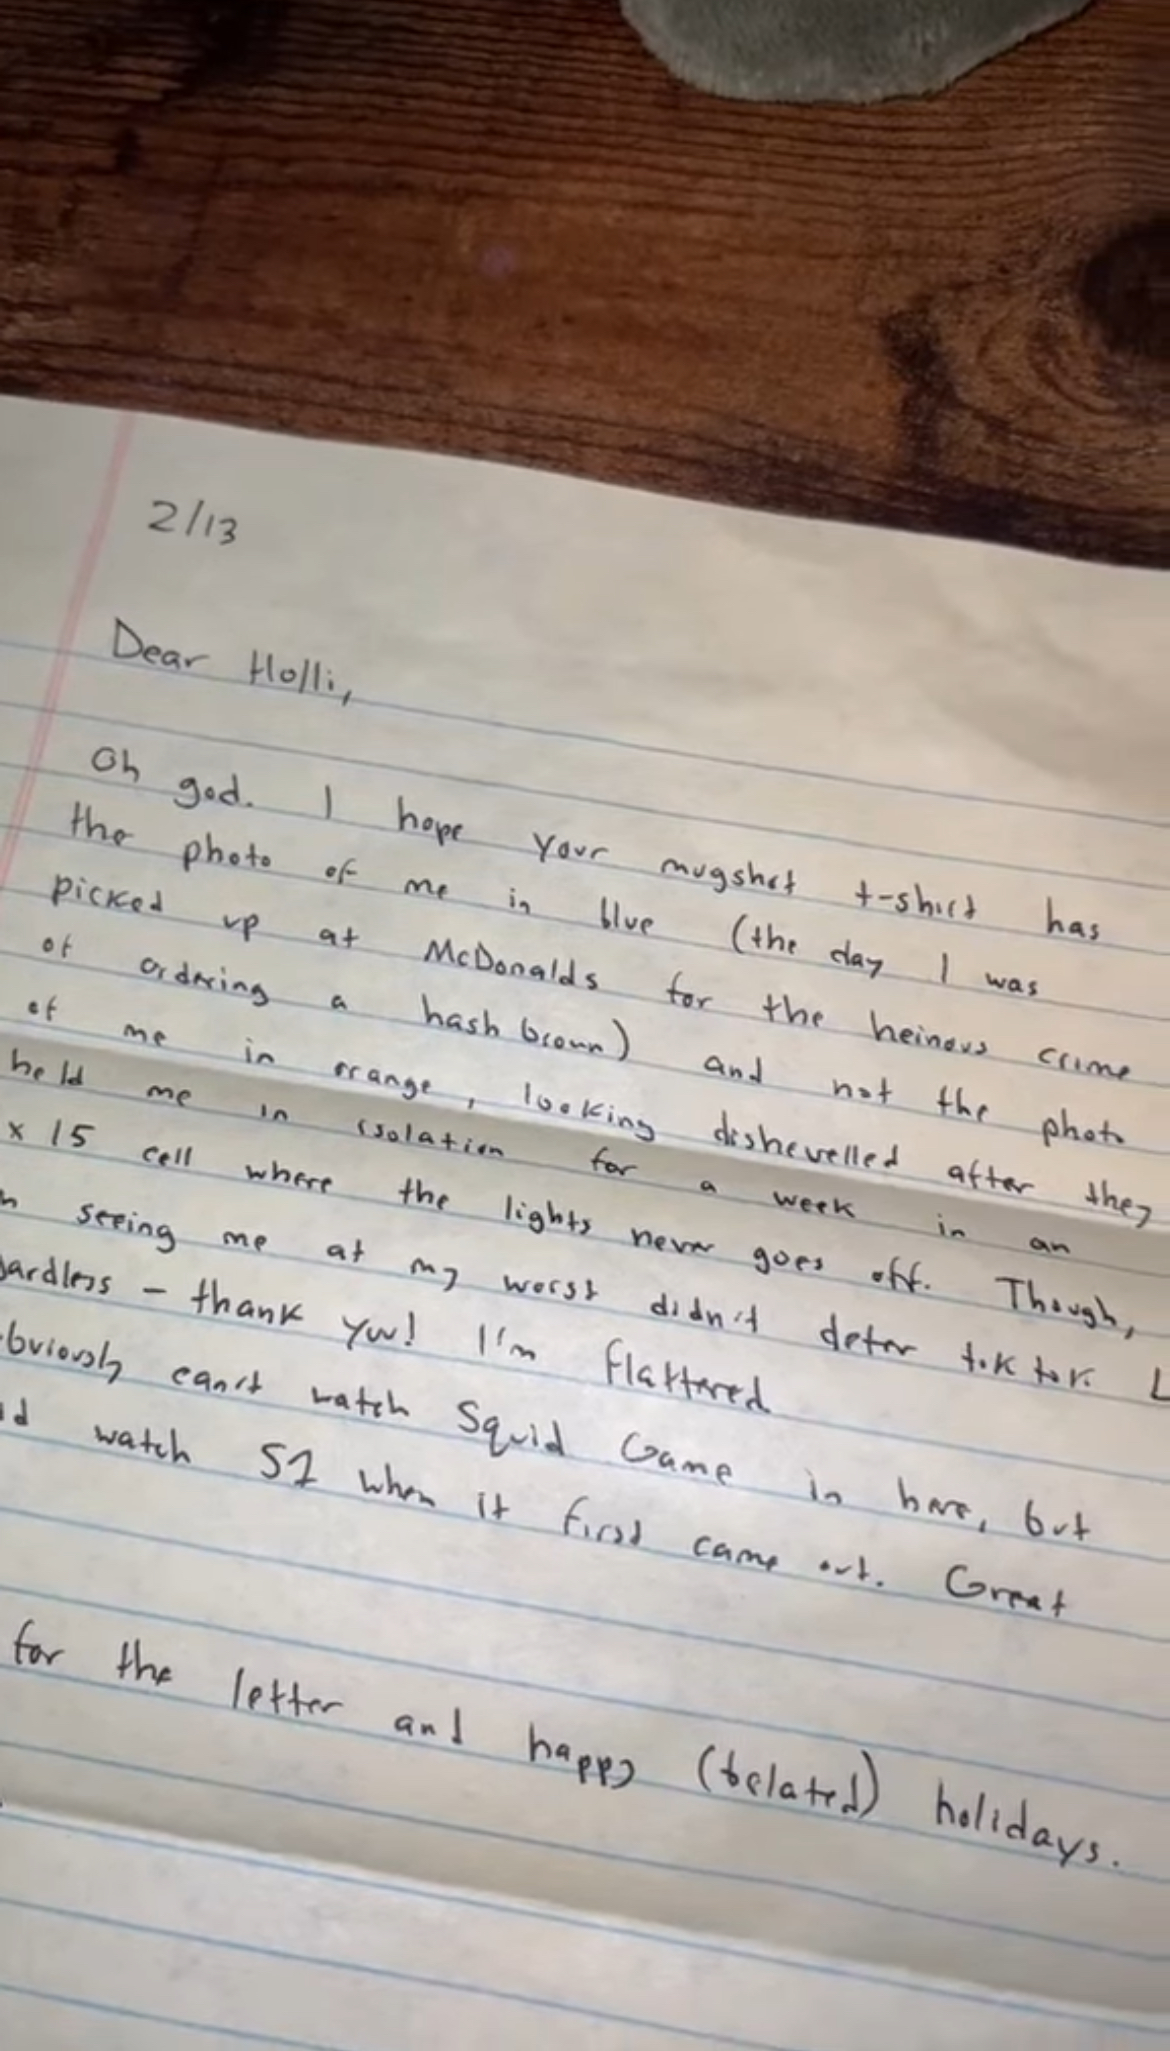 2/13
Dear Holli,
Oh god. I hope your mugshot t-shirt has
the photo of me in blue (the day I was
picked up at McDonalds for the heinous crime
of ordering a hash brown) and not the photo
of me in orange, looking dishevelled after they
held me in isolation for a week in an
x 15 cell where the lights never goes off. Though,
seeing me at my worst didn't deter tik tok. L
gardless – thank you! I'm flattered
bviously can't watch Squid Game in here, but
watch S1 when it first came out. Great
for the letter and happy (belated) holidays.